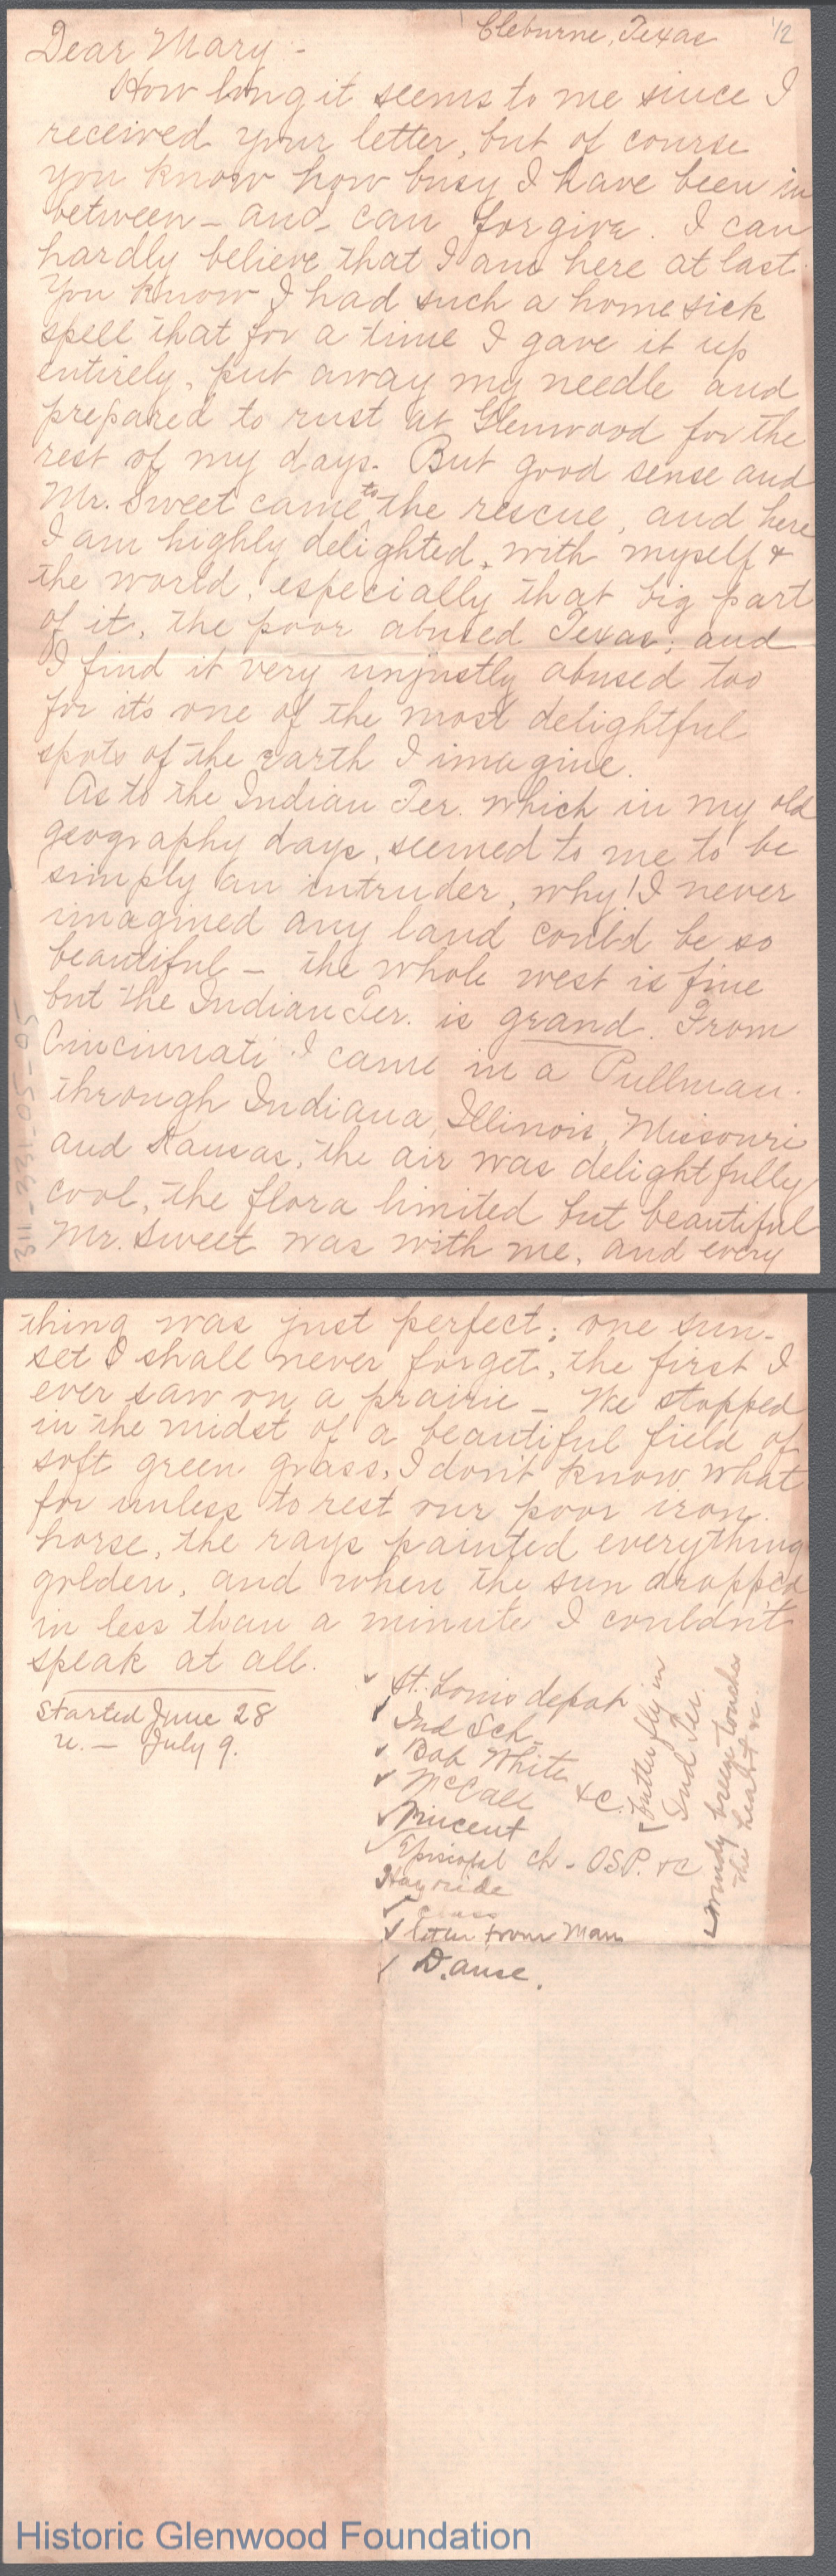 Cleburne, Texas
1/2
Dear Mary -
How long it seems to me since I
received your letter, but of course
you know how busy I have been in
between - and can forgive. I can
hardly believe that I am here at last.
You know I had such a homesick
spell that for a time I gave it up
entirely, put away my needle and
prepared to rust at Glenwood for the
rest of my days. But good sense and
Mr. Sweet came to the rescue, and here
I am highly delighted, with myself &
the world, especially that big part
of it, the poor abused Texas; and
I find it very unjustly abused too
for its one of the most delightful
spots of the earth I imagine.
As to the Indian Ter. which in my old
geography days, seemed to me to be
simply an intruder, why! I never
imagined any land could be so
beautiful - the whole west is fine
but the Indian Ter. is grand. From
Cincinnati I came in a Pullman.
through Indiana, Illinois, Missouri
and Kansas, the air was delightfully
cool, the flora limited but beautiful
Mr. Sweet was with me, and every
311-331-05-05
thing was just perfect; one sun-
set I shall never forget, the first I
ever saw on a prairie - We stopped
in the midst of a beautiful field of
soft green grass, I don't know what
for unless to rest our poor iron
horse, the rays painted everything
golden, and when the sun dropped
in less than a minute I couldn't
speak at all.
Started June 28
- July 9.
St. Louis depot
Ind Sch.
Bob White
McCall &C.
Vincent
Episcopal ch - OSP. &c
Hay ride
class
letter from Mam
Danse.
butterfly in
Ind Ter.
windy breeze touches
the heart &c.
Historic Glenwood Foundation